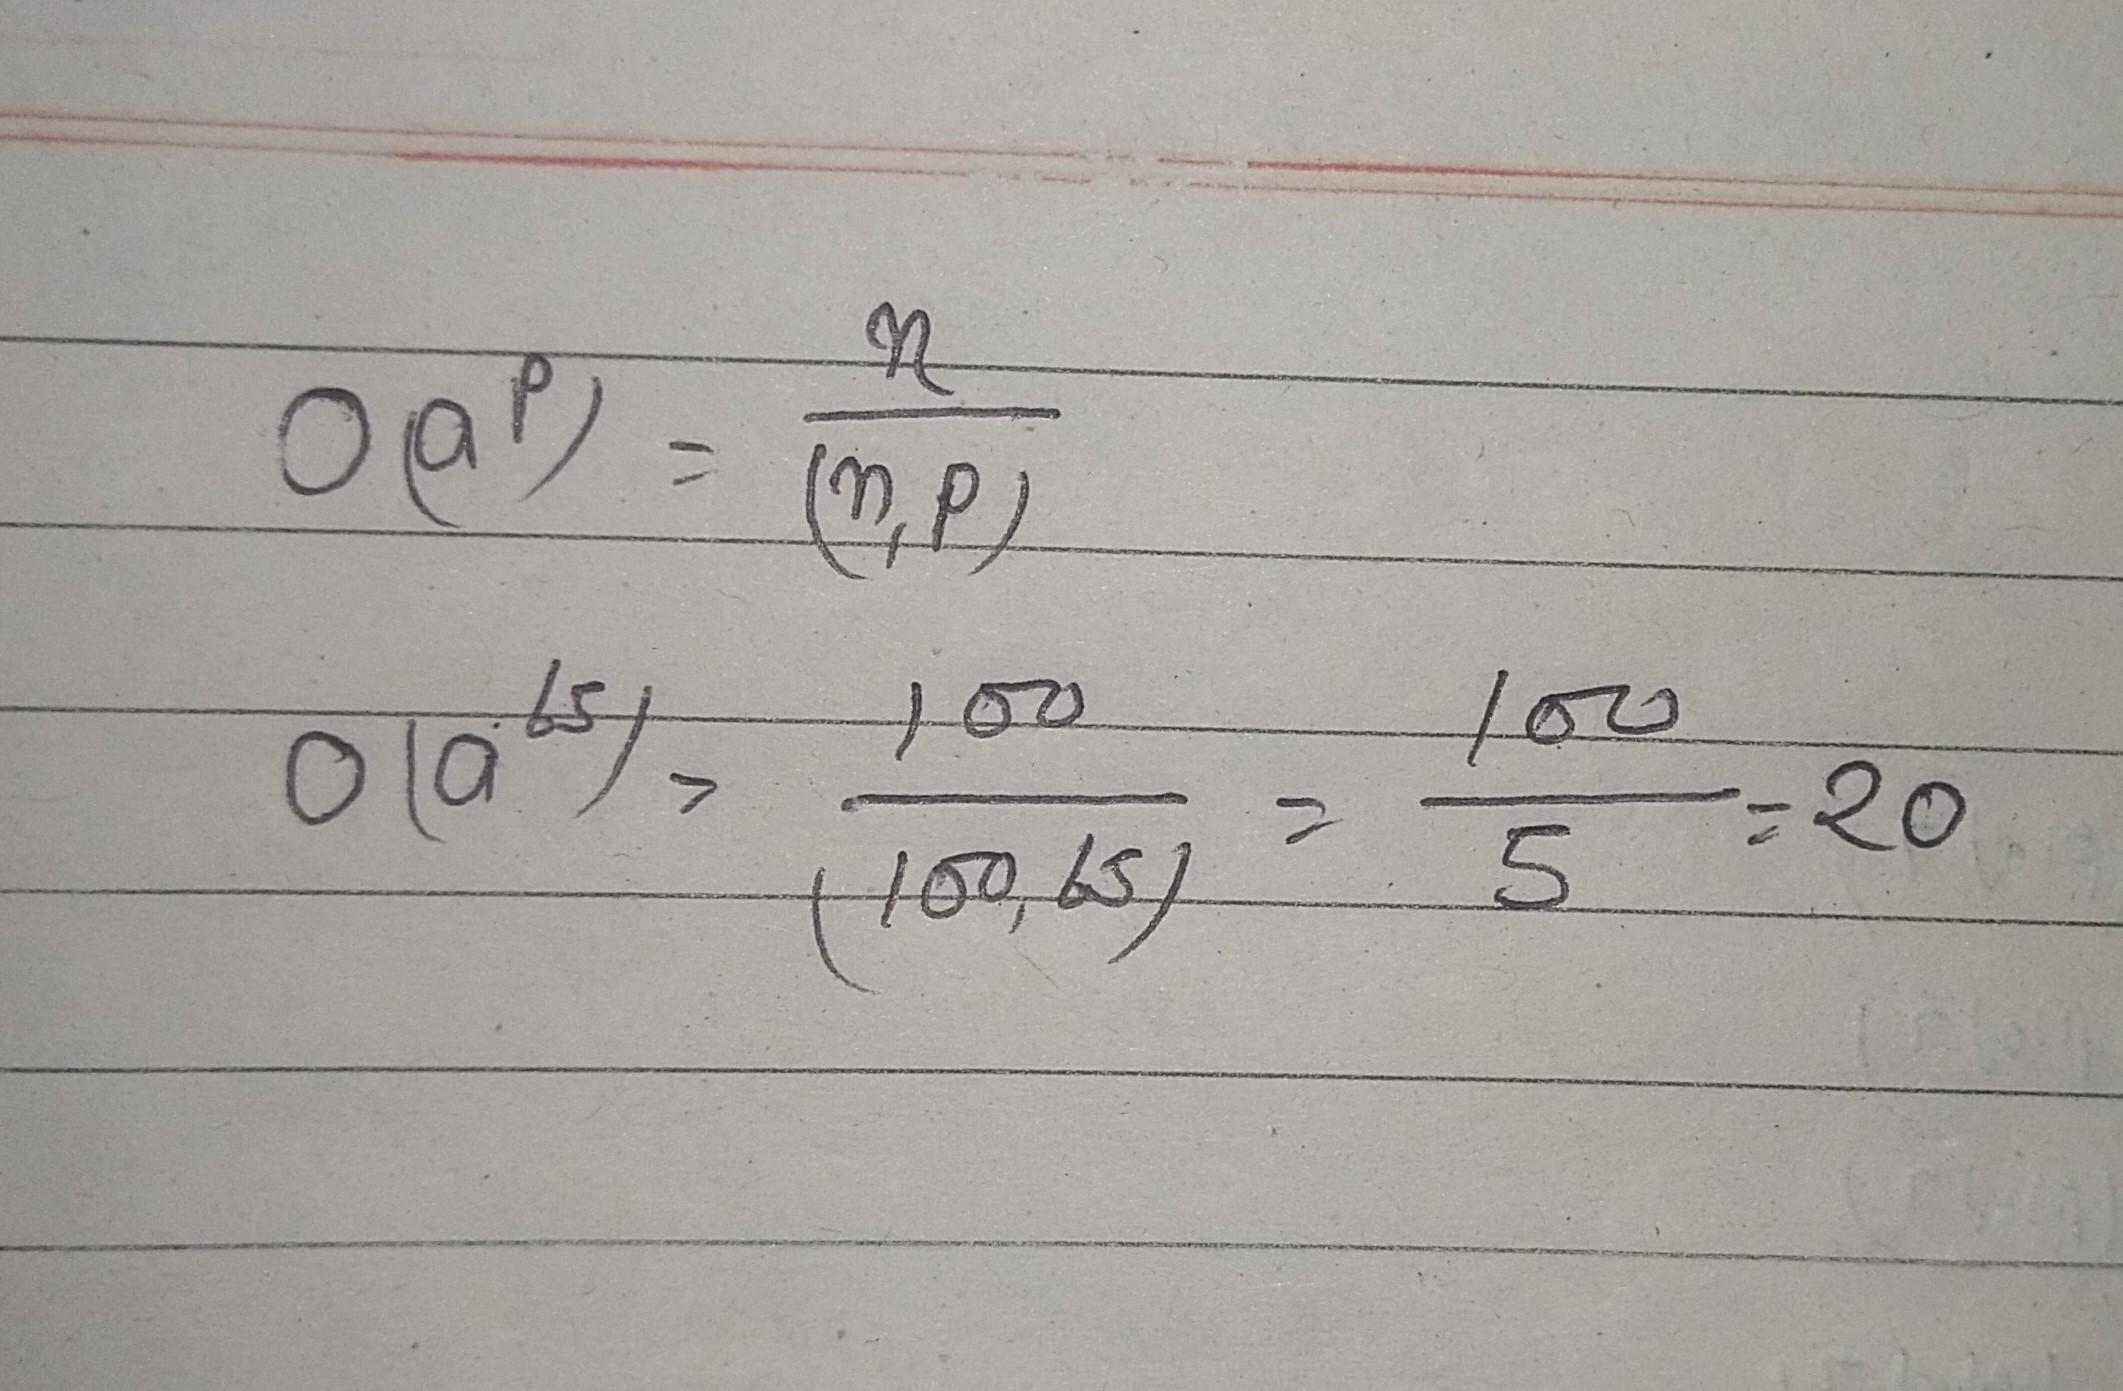 O(a^p) = n/(n,p)
O(a^65) = 100/(100,65) = 100/5 = 20